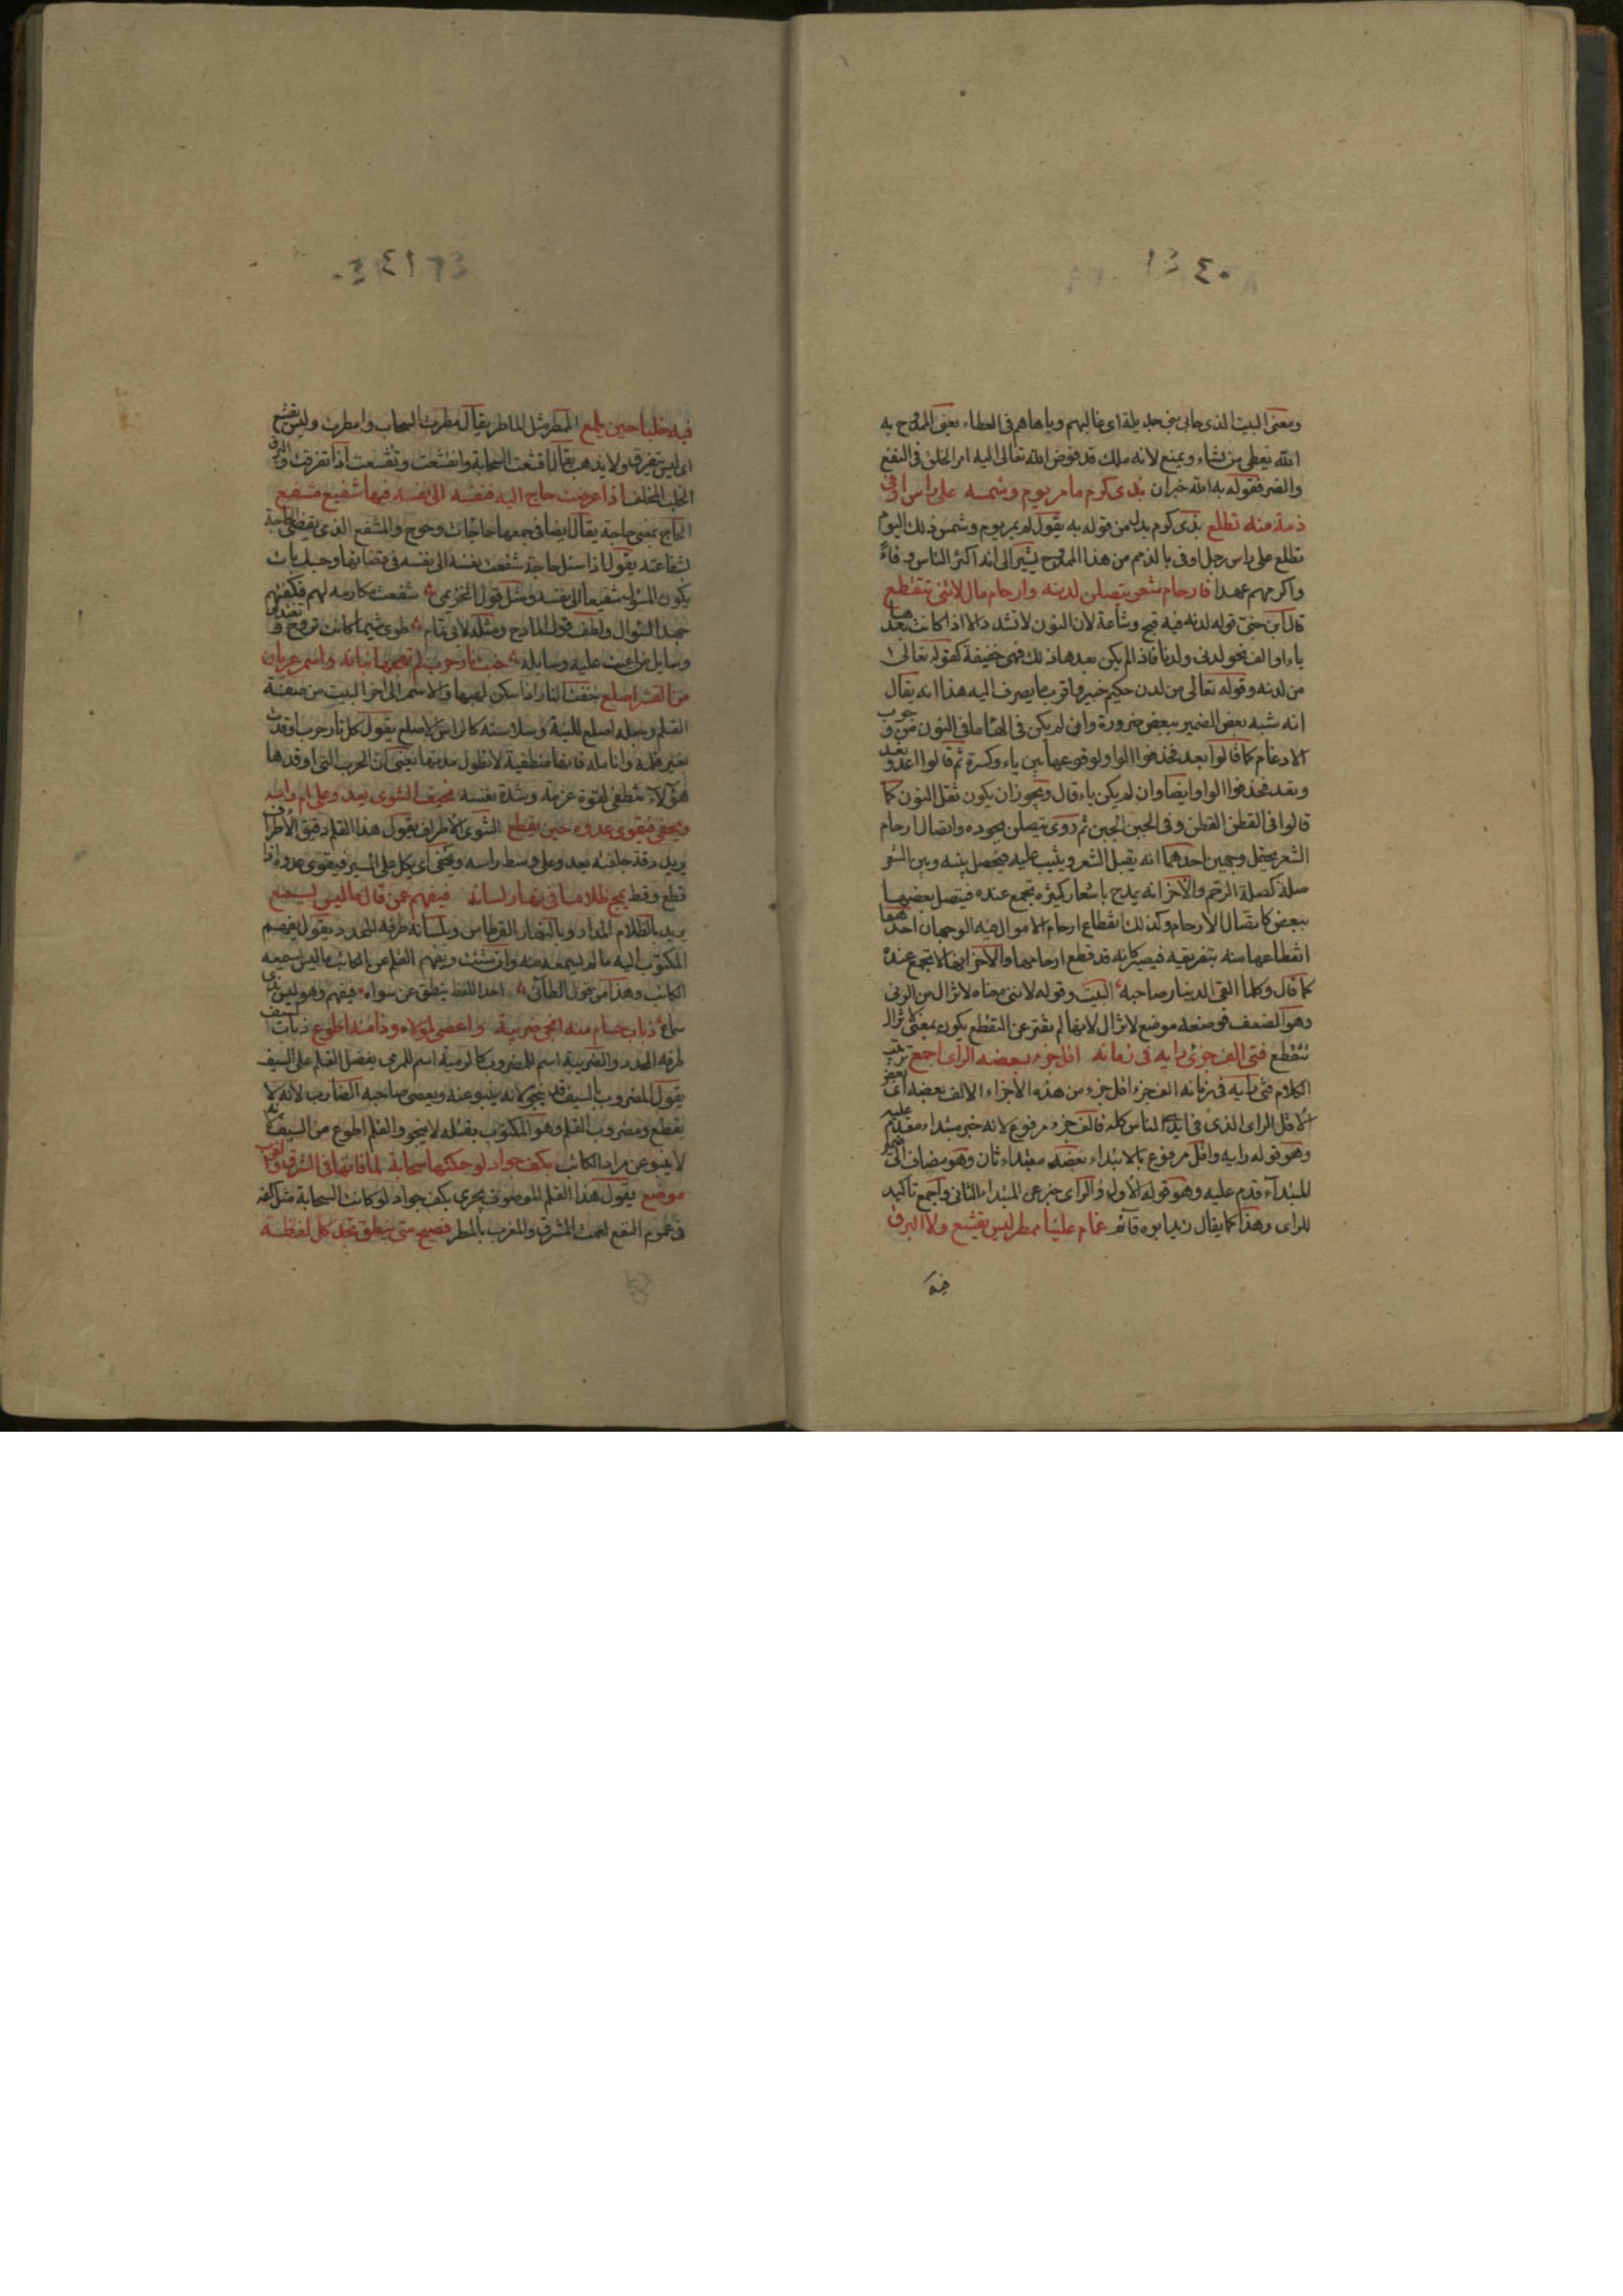 ومعنى البيت الذى حابى بنى جديلة اى غالبهم وباهاهم فى العطاء يعنى الممدوح به
الله يعطى من يشاء ويمنع لانه ملك قد فوض الله تعالى اليه امر الخلق فى النفع
والضر فقوله به الله خبران بذى كرم ما مر يوم وشمسه على راس اوفى
ذمة منه تطلع بذى كرم بدل من قوله به يقول لم يمر يوم وشمس ذلك اليوم
تطلع على راس رجل اوفى بالذمم من هذا الممدوح يشير الى انه اكثر الناس وفاءً
واكرمهم عهدا فارحام شعر يتصلن لدنه وارحام مال لاتنى تتقطع
قال ابن جنى قوله لدنه فيه قبح وشناعة لان النون لاتشدد الا اذا كانت بعدها
ياء او الف نحو لدنى ولدنا فاذا لم يكن بعدها ذلك فهى خفيفة كقوله تعالى
من لدنه وقوله تعالى من لدن حكيم خبير واقرب ما يصرف اليه هذا انه يقال
انه شبه بعض الضمير ببعض ضرورة وان لم يكن فى الها ما فى النون من وجوب
الادغام كما قالوا يعد فحذفوا الواو لوقوعها بين ياء وكسرة ثم قالوا اعد وتعد
ونعد فحذفوا الواو ايضا وان لم يكن ياء قال ويجوز ان يكون ثقل النون كما
قالوا فى القطن القطن وفى الجبن الجبن ثم روى يتصلن بجوده واتصال ارحام
الشعر يحتمل وجهين احدهما انه يقبل الشعر ويثيب عليه فيحصل بينه وبين الشعر
صلة كصلة الرحم والاخر انه يمدح باشعار كثيره تجمع عنده فيتصل بعضها
ببعض كاتصال الارحام وكذلك انقطاع ارحام الاموال فيه الوجهان احدهما
انقطاعها منه بتفريقه فيصير كانه قد قطع ارحامها والاخر انها لا تجمع عنده
كما قال وكلما القى الدينار صاحبه البيت وقوله لاتنى معناه لا تزال من الونى
وهو الضعف فوضعه موضع لا تزال لانها لم تفتر عن التقطع يكون بمعنى لا تزال
تتقطع فتى الف جزئ رايه فى زمانه اقل جزء بعضه الراى اجمع ترتيب
الكلام فتى رايه فى زمانه الف جزء اقل جزء من هذه الاجزاء الالف بعضه اى بعض
الاقل الراى الذى فى ايدى الناس كله فالف جزء مرفوع لانه خبر مبتداء مقدم عليه
وهو قوله رايه واقل مرفوع بالابتداء بعضه مبتداء ثان وهو مضاف الى ضمير
المبتدآء قدم عليه وهو قوله الاول والراى خبر عن المبتداء الثانى واجمع تاكيد
للراى وهذا كما يقال زيد ابوه قائم غمام علينا ممطر ليس يقشع ولا البرق
فيه
فيه خلبا حين يلمع الممطر مثل الماطر يقال مطرت السحاب وامطرت وليس يقشع
اى ليس يتفرق ولا يذهب يقال اقشعت السحابة وانقشعت وتقشعت اذا تفرقت والبرق
الخلب المخلف اذا عرضت حاج اليه فنفسه الى نفسه فيها شفيع مشفع
الحاج بمعنى حاجة يقال ايضا فى جمعها حاجات وحوج والمشفع الذى يقضى الحاجة
بشفاعته يقول اذا سئل حاجة شفعت نفسه الى نفسه فى قضائها وحسبك بان
يكون المسؤل شفيعا الى نفسه ومثل قول الخزيمى شفعت مكارمه لهم فكفتهم
جهد السؤال ولطف قول المادح ومثله لابى تمام طوى شيما كانت تروح وتغتدى
وسايل من اعيت عليه وسايله خبت نار حرب لم تهجها بنانه واسمر عريان
من القشر اصلع خبت النار اذا سكن لهبها والاسمر الى اخر البيت من صفة
القلم وجعله اصلع للينه وسلاسته كالراس الاصلع يقول كل نار حرب اوقدت
بغير قلمه وانامله فانها منطفية لا تطول مدتها يعنى ان الحرب التى اوقدها
هؤلاء تنطفى لقوة عزمه وشدة نفسه نحيف الشوى يعد وعلى ام راسه
ويحفى فيقوى عدوه حين يقطع الشوى الاطراف يقول هذا القلم دقيق الاطراف
يريد دقة خلقته يعد وعلى وسط راسه ويحفى اى يكل على المسير فيقوى عدوه اذا
قطع وقط يمج ظلاما فى نهار لسانه فيفهم عمن قال ما ليس يسمع
يريد بالظلام المداد وبالنهار القرطاس وبلسانه طرفه المحدد يقول يفهم
المكتوب اليه ما لم يسمعه منه وان شئت ويفهم القلم عن الكاتب ما ليس يسمعه
الكاتب وهذا من قول الطائى احد اللفظ ينطق عن سواه فيفهم وهو ليس بذى
سماع ذباب حسام منه انجى ضريبة واعصى لمولاه وذا منه اطوع ذباب السيف
طرفه المحدد والضريبة اسم للمضروب كالرمية اسم للمرمى يفضل القلم على السيف
يقول المضروب بالسيف قد ينجو لانه ينبو عنه ويعصى صاحبه الضارب لانه لا
يقطع ومضروب القلم وهو المكتوب بقتله لا ينجو والقلم اطوع من السيف لانه
لا ينبو عن مراد الكاتب بكف جواد لو حكتها سحابة لما فاتها فى الشرق والغرب
موضع يقول هذا القلم الموصوف يجرى بكف جواد لو كانت السحابة مثل كفه
فى عموم النفع لعمت المشرق والمغرب بالمطر فصيح متى ينطق تجد كل لفظة